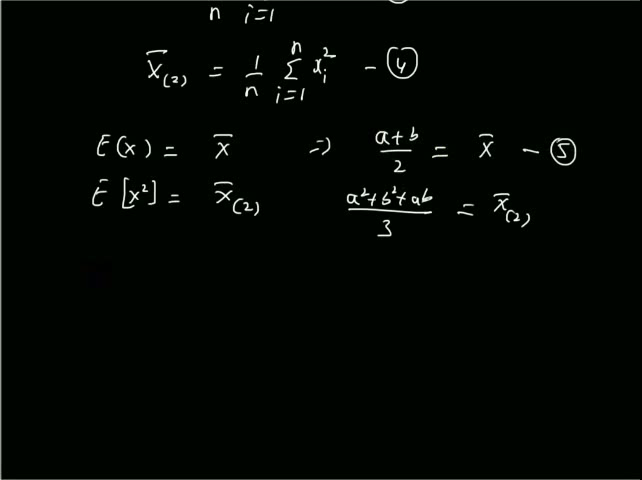 n i=1
X̄(2) = 1/n Σ(i=1 to n) xᵢ² - ④
E(x) = x̄ ⇒ (a+b)/2 = x̄ - ⑤
E[x²] = x̄(2) (a²+b²+ab)/3 = x̄(2)